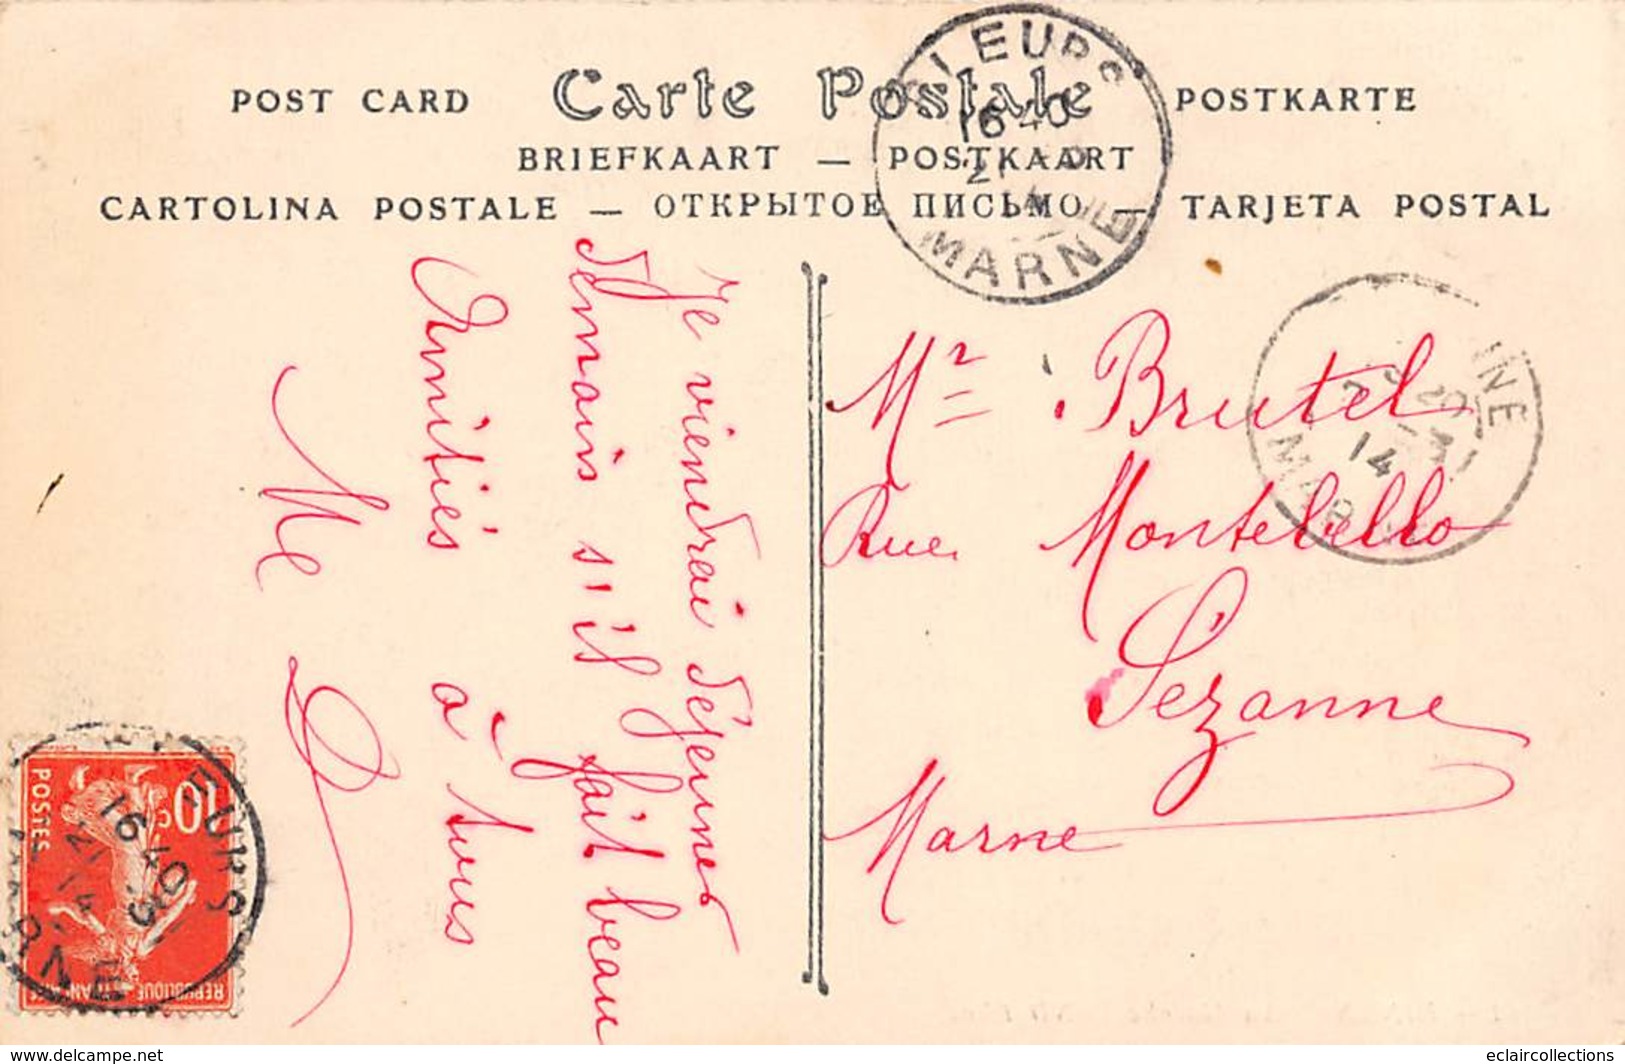 POST CARD Carte Postale POSTKARTE
BRIEFKAART — POSTKAART
CARTOLINA POSTALE — ОТКРЫТОЕ ПИСЬМО — TARJETA POSTAL
PLEURS
16 40
21
14
MARNE
Je viendrai déjeuner
demain s'il fait beau
Amitiés à tous
Me
Mr Brutel
Rue Montebello
Sézanne
Marne
14
MARNE
POSTES
10c
REPUBLIQUE FRANÇAISE
PLEURS
16 40
MARNE
www.delcampe.net
eclaircollections